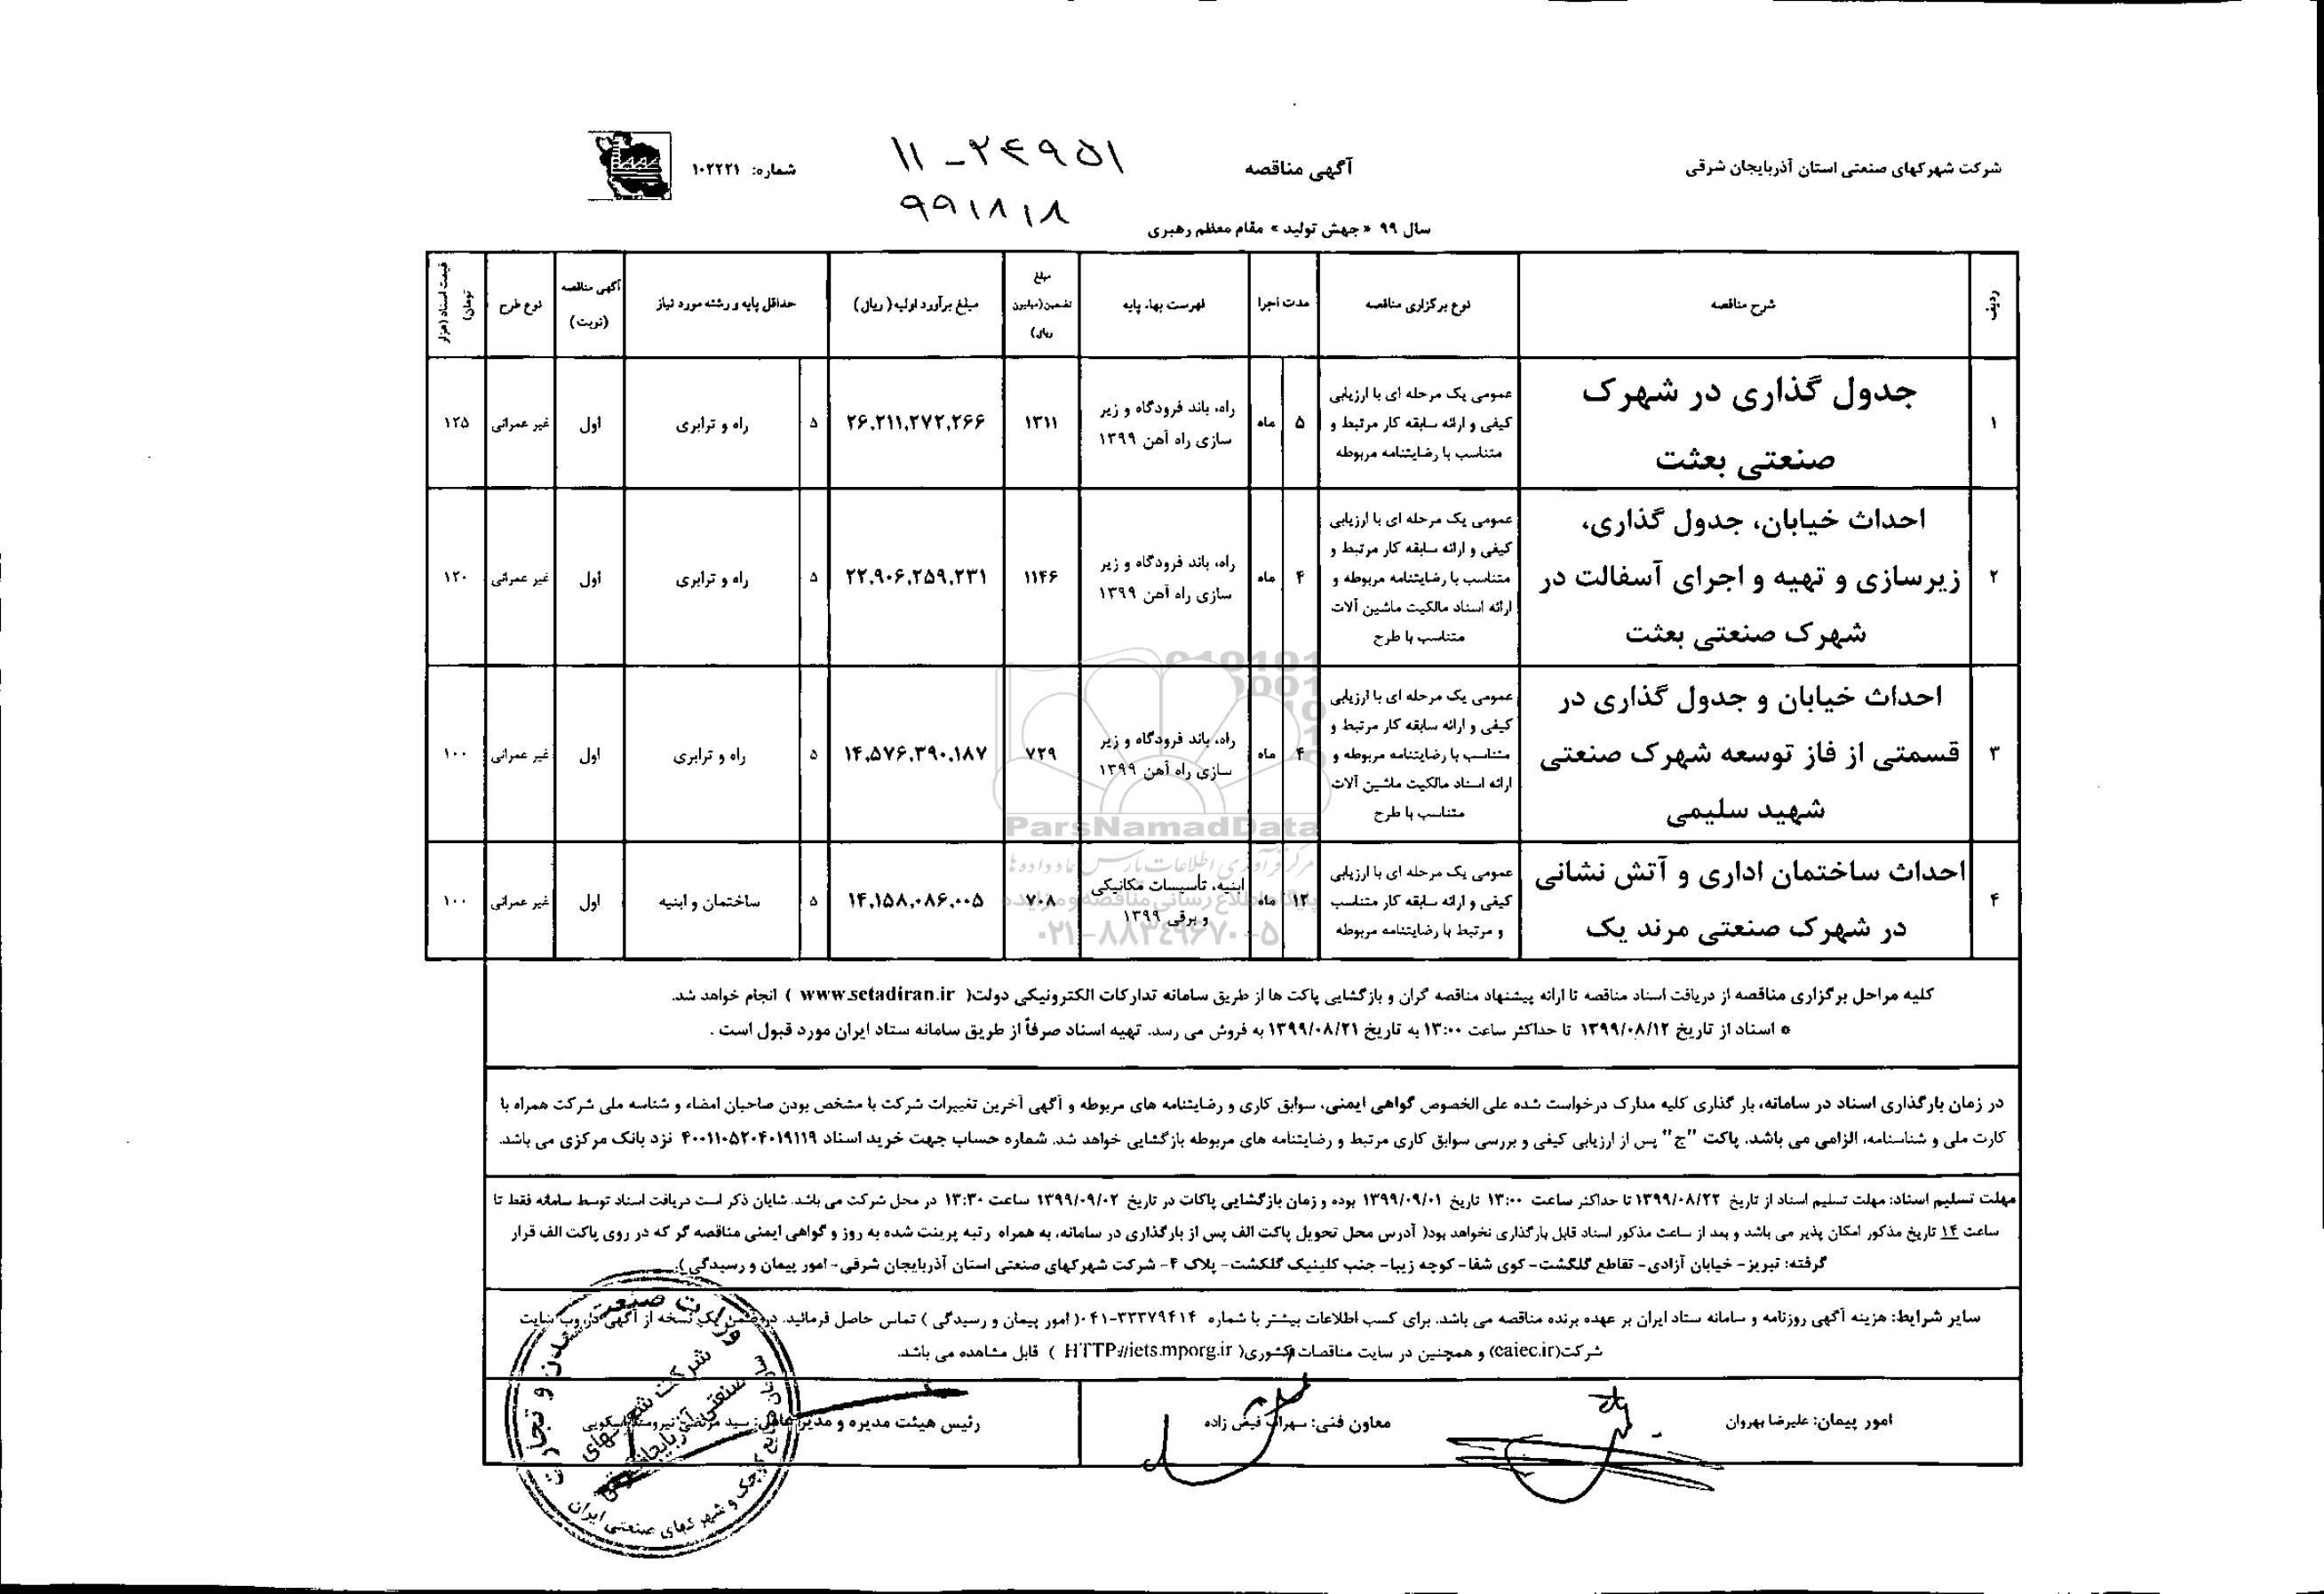 شرکت شهرکهای صنعتی استان آذربایجان شرقی
آگهی مناقصه
۱۱-۲۴۹۵۱
شماره: ۱۰۲۲۲۱
۹۹/۸/۸
سال ۹۹ « جهش تولید » مقام معظم رهبری
ردیف
شرح مناقصه
نوع برگزاری مناقصه
مدت اجرا
فهرست بهاء پایه
مبلغ
تضمین(میلیون
ریال)
مبلغ برآورد اولیه( ریال)
حداقل پایه و رشته مورد نیاز
آگهی مناقصه
(نوبت)
نوع طرح
قیمت اسناد (هزار
تومان)
۱
جدول گذاری در شهرک
صنعتی بعثت
عمومی یک مرحله ای با ارزیابی
کیفی و ارائه سابقه کار مرتبط و
متناسب با رضایتنامه مربوطه
۵
ماه
راه، باند فرودگاه و زیر
سازی راه آهن ۱۳۹۹
۱۳۱۱
۲۶,۲۱۱,۲۷۲,۲۶۶
۵
راه و ترابری
اول
غیر عمرانی
۱۲۵
۲
احداث خیابان، جدول گذاری،
زیرسازی و تهیه و اجرای آسفالت در
شهرک صنعتی بعثت
عمومی یک مرحله ای با ارزیابی
کیفی و ارائه سابقه کار مرتبط و
متناسب با رضایتنامه مربوطه و
ارائه اسناد مالکیت ماشین آلات
متناسب با طرح
۴
ماه
راه، باند فرودگاه و زیر
سازی راه آهن ۱۳۹۹
۱۱۴۶
۲۲,۹۰۶,۲۵۹,۲۳۱
۵
راه و ترابری
اول
غیر عمرانی
۱۲۰
۳
احداث خیابان و جدول گذاری در
قسمتی از فاز توسعه شهرک صنعتی
شهید سلیمی
عمومی یک مرحله ای با ارزیابی
کیفی و ارائه سابقه کار مرتبط و
متناسب با رضایتنامه مربوطه و
ارائه اسناد مالکیت ماشین آلات
متناسب با طرح
۴
ماه
راه، باند فرودگاه و زیر
سازی راه آهن ۱۳۹۹
۷۲۹
۱۴,۵۷۶,۳۹۰,۱۸۷
۵
راه و ترابری
اول
غیر عمرانی
۱۰۰
ParsNamadData
۴
احداث ساختمان اداری و آتش نشانی
در شهرک صنعتی مرند یک
عمومی یک مرحله ای با ارزیابی
کیفی و ارائه سابقه کار متناسب
و مرتبط با رضایتنامه مربوطه
۱۲
ماه
ابنیه، تأسیسات مکانیکی
و برقی ۱۳۹۹
۷۰۸
۱۴,۱۵۸,۰۸۶,۰۰۵
۵
ساختمان و ابنیه
اول
غیر عمرانی
۱۰۰
۰۲۱-۸۸۳۴۹۶۷۰-۵
کلیه مراحل برگزاری مناقصه از دریافت اسناد مناقصه تا ارائه پیشنهاد مناقصه گران و بازگشایی پاکت ها از طریق سامانه تدارکات الکترونیکی دولت( www.setadiran.ir ) انجام خواهد شد.
* اسناد از تاریخ ۱۳۹۹/۰۸/۱۲ تا حداکثر ساعت ۱۳:۰۰ به تاریخ ۱۳۹۹/۰۸/۲۱ به فروش می رسد. تهیه اسناد صرفاً از طریق سامانه ستاد ایران مورد قبول است .
در زمان بارگذاری اسناد در سامانه، بار گذاری کلیه مدارک درخواست شده علی الخصوص گواهی ایمنی، سوابق کاری و رضایتنامه های مربوطه و آگهی آخرین تغییرات شرکت با مشخص بودن صاحبان امضاء و شناسه ملی شرکت همراه با
کارت ملی و شناسنامه، الزامی می باشد. پاکت "ج" پس از ارزیابی کیفی و بررسی سوابق کاری مرتبط و رضایتنامه های مربوطه بازگشایی خواهد شد. شماره حساب جهت خرید اسناد ۴۰۰۱۱۰۵۲۰۴۰۱۹۱۱۹ نزد بانک مرکزی می باشد.
مهلت تسلیم اسناد: مهلت تسلیم اسناد از تاریخ ۱۳۹۹/۰۸/۲۲ تا حداکثر ساعت ۱۳:۰۰ تاریخ ۱۳۹۹/۰۹/۰۱ بوده و زمان بازگشایی پاکات در تاریخ ۱۳۹۹/۰۹/۰۲ ساعت ۱۳:۳۰ در محل شرکت می باشد. شایان ذکر است دریافت اسناد توسط سامانه فقط تا
ساعت ۱۴ تاریخ مذکور امکان پذیر می باشد و بعد از ساعت مذکور اسناد قابل بارگذاری نخواهد بود( آدرس محل تحویل پاکت الف پس از بارگذاری در سامانه، به همراه رتبه پرینت شده به روز و گواهی ایمنی مناقصه گر که در روی پاکت الف قرار
گرفته: تبریز- خیابان آزادی- تقاطع گلگشت- کوی شفا- کوچه زیبا- جنب کلینیک گلگشت- پلاک ۴- شرکت شهرکهای صنعتی استان آذربایجان شرقی- امور پیمان و رسیدگی).
سایر شرایط: هزینه آگهی روزنامه و سامانه ستاد ایران بر عهده برنده مناقصه می باشد. برای کسب اطلاعات بیشتر با شماره ۳۳۳۷۹۴۱۴-۰۴۱( امور پیمان و رسیدگی ) تماس حاصل فرمائید. در ضمن یک نسخه از آگهی در وب سایت
شرکت(eaiec.ir) و همچنین در سایت مناقصات کشوری( HTTP://iets.mporg.ir ) قابل مشاهده می باشد.
امور پیمان: علیرضا بهروان
معاون فنی: سهراب فیض زاده
رئیس هیئت مدیره و مدیر عامل: سید مرتضی نیرومند اسکویی
وزارت صنعت معدن و تجارت
سازمان صنایع کوچک و شهرکهای صنعتی ایران
شرکت شهرکهای
صنعتی آذربایجان شرقی